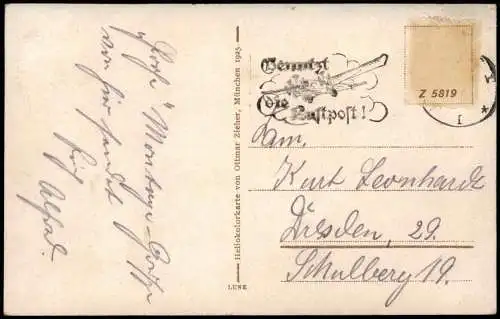 "Montags-Grüße
von hier sendet
Alfred.
Heliokolorkarte von Ottmar Zieher, München 1925
LUNK
Benutzt
die Luftpost!
Z 5819
1
Fam.
Kurt Leonhardt
Dresden, 29.
Schulberg 19.